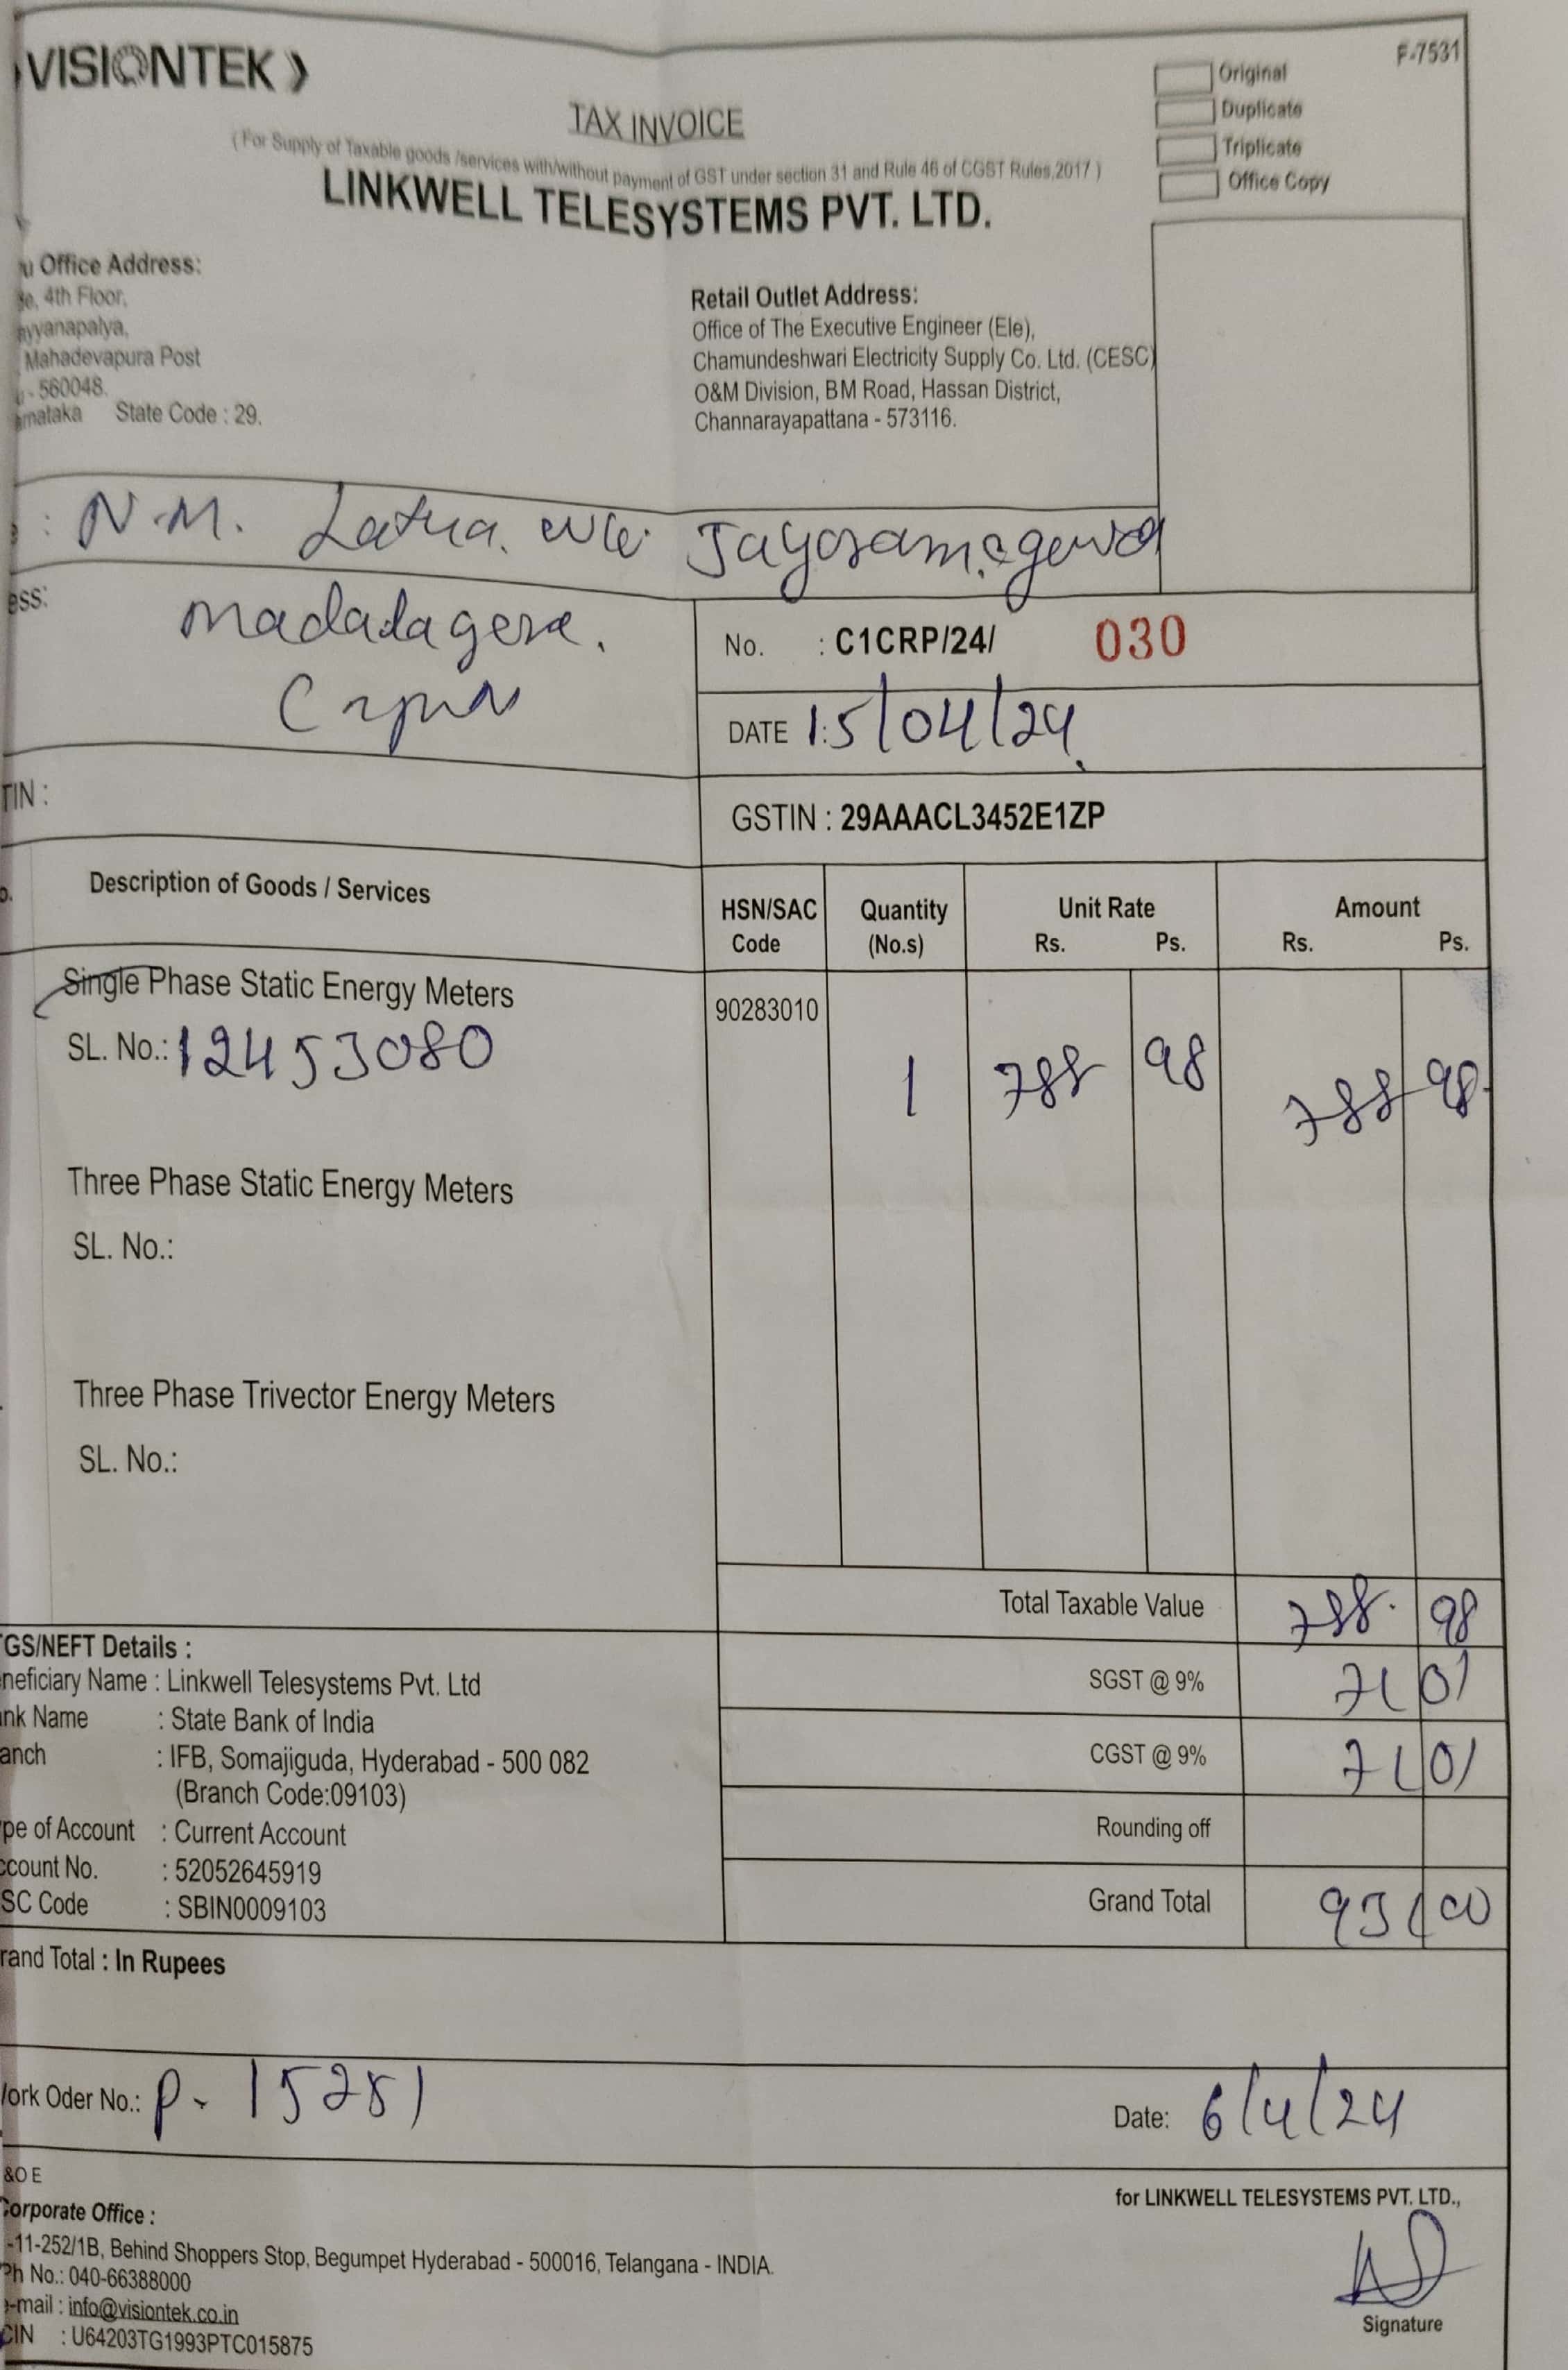 VISIONTEK
F-7531
Original
Duplicate
Triplicate
Office Copy
TAX INVOICE
( For Supply of Taxable goods /services with/without payment of GST under section 31 and Rule 46 of CGST Rules,2017 )
LINKWELL TELESYSTEMS PVT. LTD.
Office Address:
4th Floor,
ayyanapalya,
Mahadevapura Post
- 560048.
State Code : 29.
Retail Outlet Address:
Office of The Executive Engineer (Ele),
Chamundeshwari Electricity Supply Co. Ltd. (CESC)
O&M Division, BM Road, Hassan District,
Channarayapattana - 573116.
: N.M.
ess:
No. : C1CRP/24/ 030
DATE 15/04/24
TIN :
GSTIN : 29AAACL3452E1ZP
Description of Goods / Services
HSN/SAC Code
Quantity (No.s)
Unit Rate
Rs. Ps.
Amount
Rs. Ps.
Single Phase Static Energy Meters
SL. No.: 12453080
90283010 1 788 98 788 98
Three Phase Static Energy Meters
SL. No.:
Three Phase Trivector Energy Meters
SL. No.:
Total Taxable Value 788. 98
SGST @ 9% 71 01
CGST @ 9% 71 01
Rounding off
Grand Total 931 00
GS/NEFT Details :
neficiary Name : Linkwell Telesystems Pvt. Ltd
nk Name : State Bank of India
anch : IFB, Somajiguda, Hyderabad - 500 082
(Branch Code:09103)
pe of Account : Current Account
ccount No. : 52052645919
SC Code : SBIN0009103
rand Total : In Rupees
ork Oder No.: P- 15281
Date: 6/4/24
&O E
Corporate Office :
-11-252/1B, Behind Shoppers Stop, Begumpet Hyderabad - 500016, Telangana - INDIA.
Ph No.: 040-66388000
e-mail : info@visiontek.co.in
CIN : U64203TG1993PTC015875
for LINKWELL TELESYSTEMS PVT. LTD.,
Signature